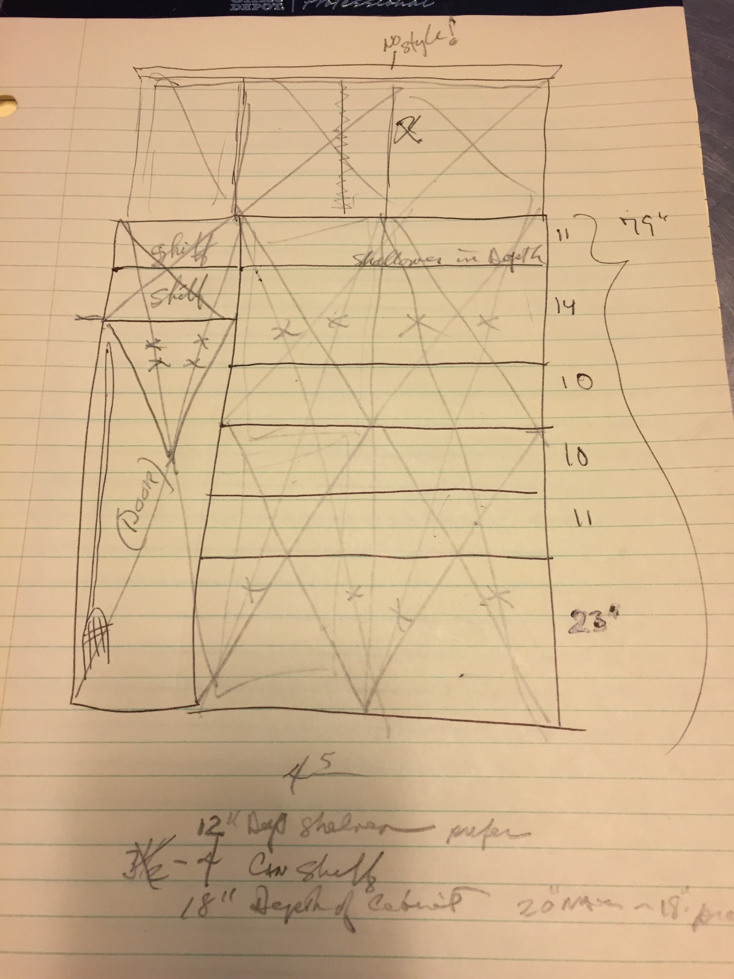 DEPOT | Professional
No style!
11
79"
shelf
Shallower in Depth
shelf
14
10
10
(Door)
11
23"
45
12" Dept Shelves prefer
- 4 Can Shelfs
18" Depth of Cabinet 20" Max - 18"